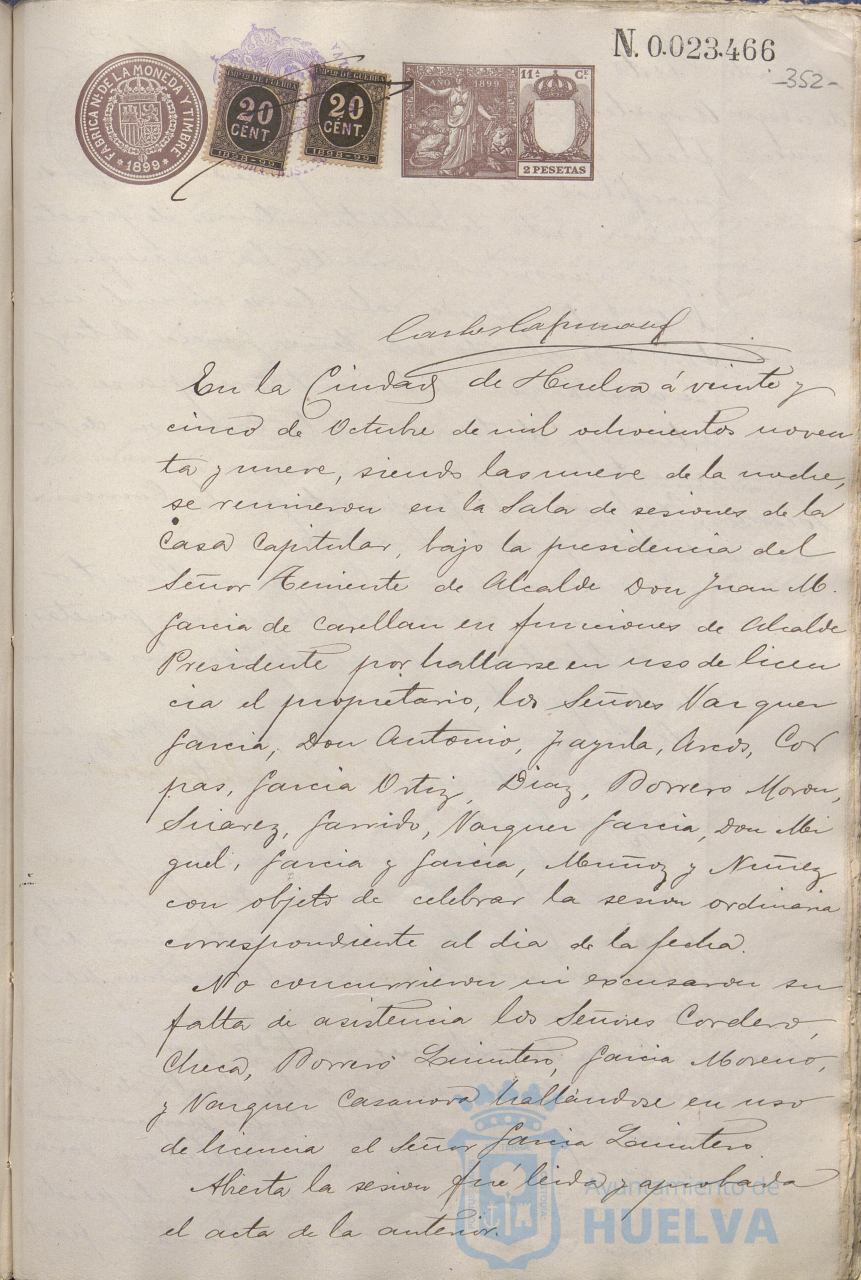 N. 0.023.466
-352-
FABRICA Nl. DE LA MONEDA Y TIMBRE
* 1899 *
IMPTO DE GUERRA
20
CENT
1898-99
IMPTO DE GUERRA
20
CENT.
1898-99
AÑO 1899
11ª Cº
2 PESETAS
En la Ciudad de Huelva á veinte y
cinco de Octubre de mil ochocientos noven
ta y nueve, siendo las nueve de la noche,
se reunieron en la Sala de sesiones de la
Casa Capitular, bajo la presidencia del
Señor Teniente de Alcalde Don Juan M.
Garcia de Carellan en funciones de Alcalde
Presidente por hallarse en uso de licen
cia el propietario, los Señores Vazquez
Garcia, Don Antonio, Jayula, Arcos, Cor
pas, Garcia Ortiz, Diaz, Borrero Moron,
Suarez, Garrido, Vazquez Garcia, Don Mi
guel, Garcia y Garcia, Muñoz y Nuñez
con objeto de celebrar la sesion ordinaria
correspondiente al dia de la fecha.
No concurrieron ni excusaron su
falta de asistencia los Señores Cordero,
Checa, Borrero Quintero, Garcia Moreno,
y Vazquez Casanova hallándose en uso
de licencia el Señor Garcia Quintero.
Abierta la sesion fué leida y aprobada
el acta de la anterior.
Ayuntamiento de
HUELVA